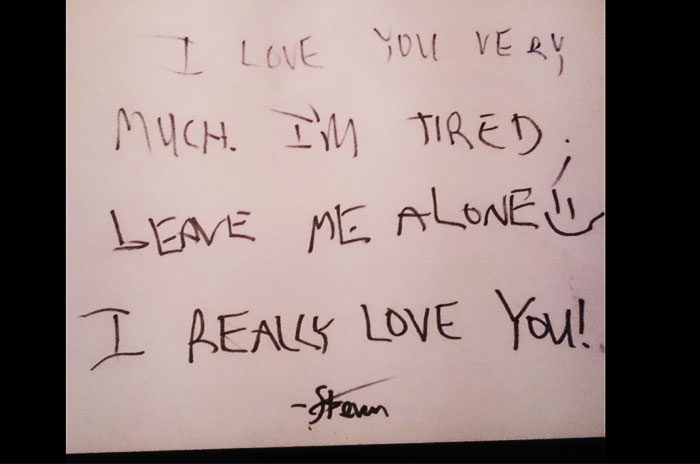 I LOVE YOU VERY
MUCH. I'M TIRED.
LEAVE ME ALONE
I REALLY LOVE YOU!
-Steven